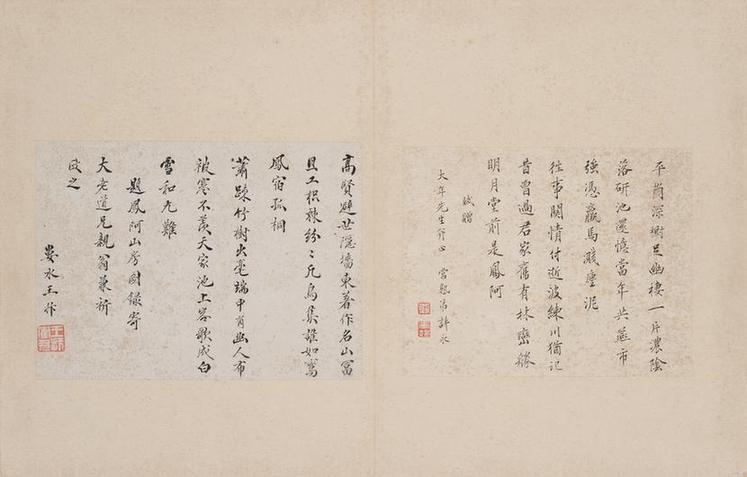 平崗深樹足幽棲一片濃陰
落研池還憶當年共燕市
強憑羸馬踐塵泥
往事關情付逝波練川猶記
昔曾過君家舊有林巒勝
明月堂前是鳳阿
賦贈
大年先生斧正 弟許永
高賢避世隱墻東著作名山冨
且工枳棘紛〻凡鳥集誰如鸞
鳳宿孤桐
蕭踈竹樹出毫端中有幽人布
被寒不羨天家池上客歌成白
雪和尤難
題鳳阿山房圖錄寄
大老道兄親翁兼祈
政之
婁水王